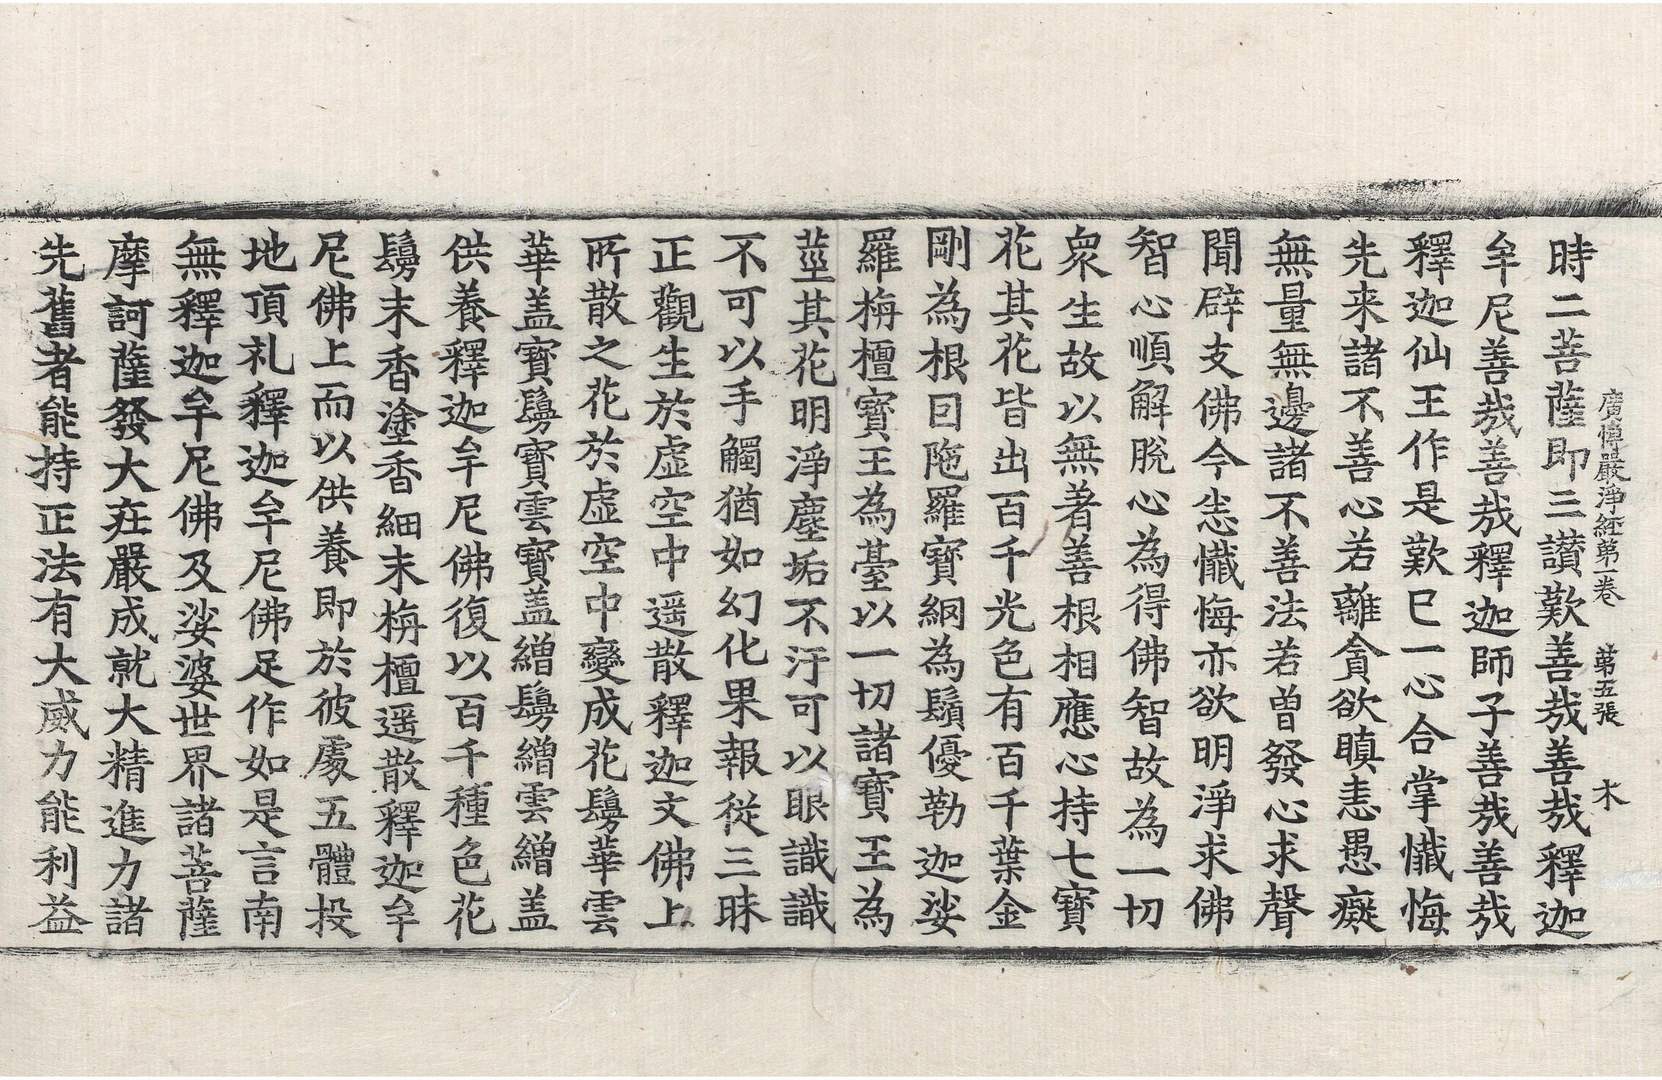 廣博嚴淨經第一卷 第五張 木
時二菩薩即三讃歎善哉善哉釋迦
牟尼善哉善哉釋迦師子善哉善哉
釋迦仙王作是歎已一心合掌懴悔
先来諸不善心若離貪欲瞋恚愚癡
無量無邊諸不善法若曽發心求聲
聞辟支佛今悉懴悔亦欲明淨求佛
智心順解脫心為得佛智故為一切
衆生故以無著善根相應心持七寳
花其花皆出百千光色有百千葉金
剛為根因陁羅寳網為鬚優勒迦娑
羅栴檀寳王為臺以一切諸寳王為
莖其花明淨塵垢不汙可以眼識識
不可以手觸猶如幻化果報從三昧
正觀生於虛空中遥散釋迦文佛上
所散之花於虛空中變成花鬘華雲
華盖寳鬘寳雲寳盖繒鬘繒雲繒盖
供養釋迦牟尼佛復以百千種色花
鬘末香塗香細末栴檀遥散釋迦牟
尼佛上而以供養即於彼處五體投
地頂礼釋迦牟尼佛足作如是言南
無釋迦牟尼佛及娑婆世界諸菩薩
摩訶薩發大莊嚴成就大精進力諸
先舊者能持正法有大威力能利益